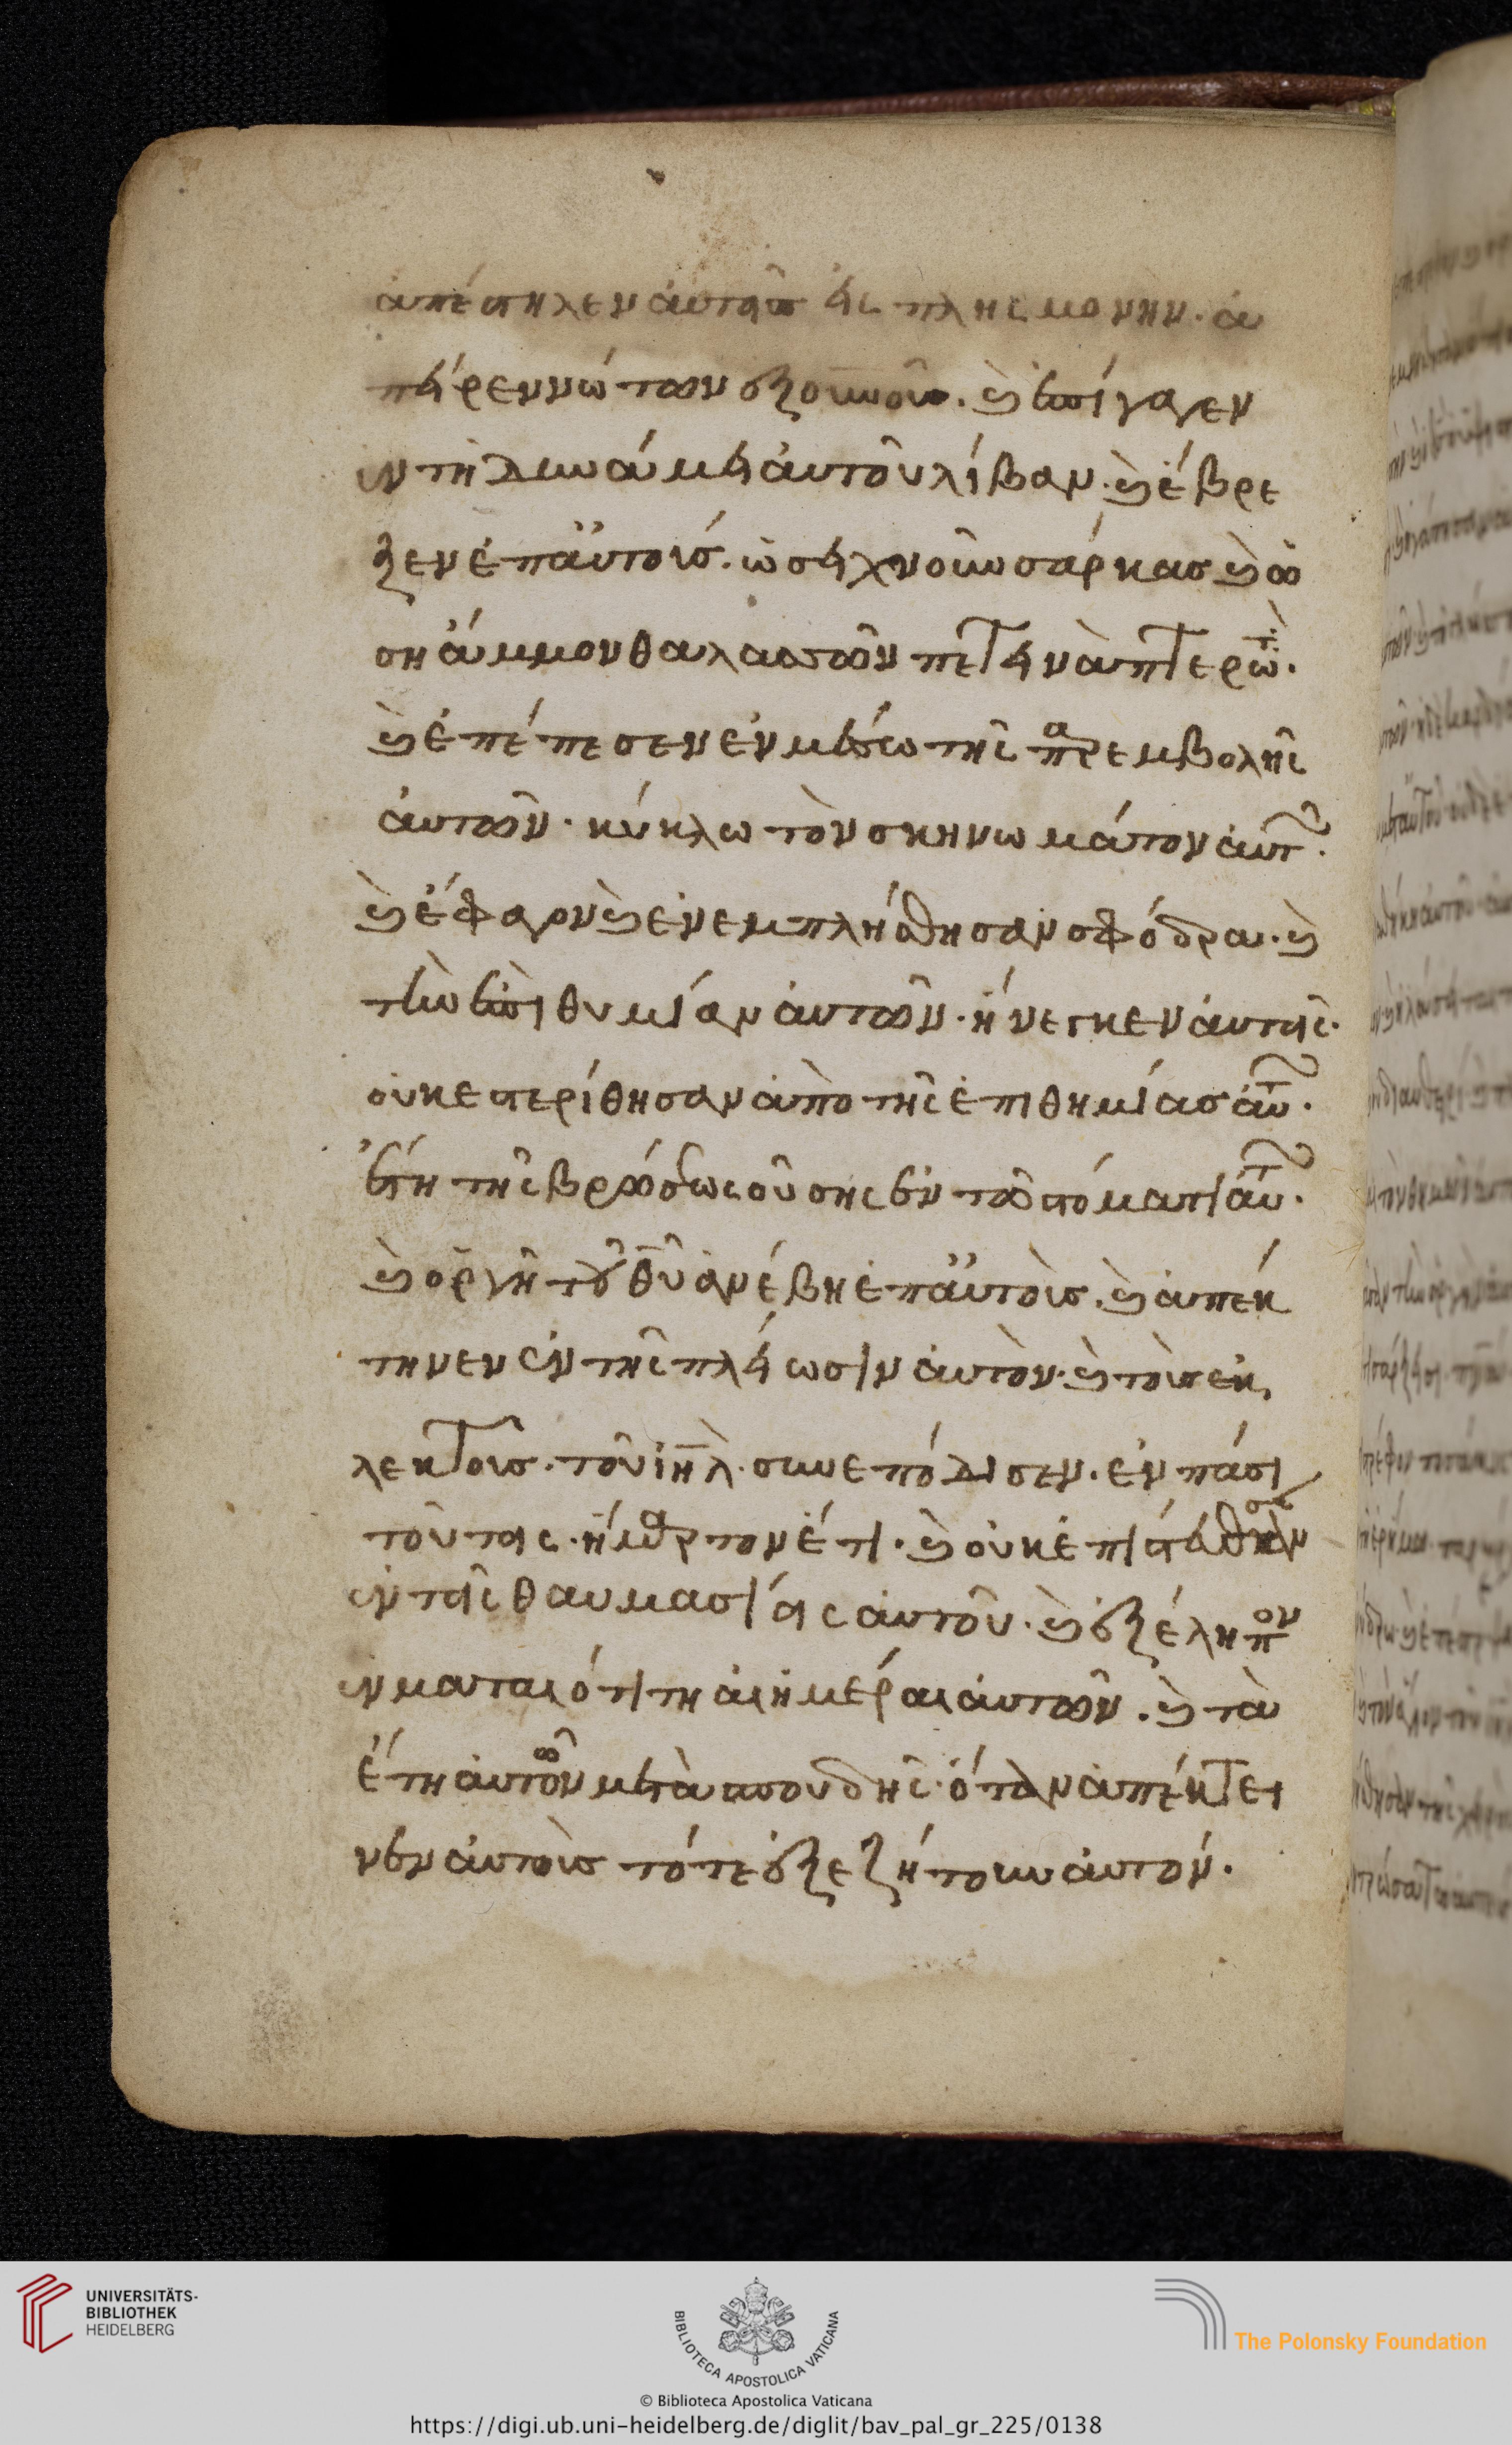 ἀπέστηλεν ἀυταῖσ εἰς πλησμονὴν· ἀ
πεῖρεν νώτων ἐξ οὐνοῦ. καὶ ἐπίγαγεν
ἐν τῆ δυνάμει ἀυτοῦ λίβαν· καὶ ἔβρε
ξεν ἐπ' ἀυτοισ. ὡσεὶ χνοῦν σάρκασ καὶ ὡ
σὴ ἄμμον θαλασσῶν πετεινὰ πτερωτὰ.
καὶ ἐπέπεσεν ἐν μέσω τῆς παρεμβολῆς
ἀυτῶν· κύκλω τὸν σκηνωμάτον ἀυτ.
καὶ ἔφαγον καὶ ἐνεμπλήσθησαν σφόδρα· καὶ
τὴν ἐπιθυμίαν ἀυτῶν· ἤνεγκεν ἀυταῖς·
οὐκ εστερίθησαν ἀπὸ τῆς ἐπιθημίασ ἀυτ.
ἔτη τῆς βρώσεως οὔσης ἐν τῶ στόματι ἀυτ.
καὶ ὀργὴ τοῦ θῦ ἀνέβη ἐπ' ἀυτοὶσ. καὶ ἀπέκ
τηνεν ἐν τῆς πλείωσιν ἀυτὸν· καὶ τοὺσ ἐκ
λεκτοισ· τοῦ ἰῆλ· συνεπόδισεν· ἐν πάσι
τοῦταις· ἥμαρτον ἔτι· καὶ οὐκ ἐπιστέυθησαν
ἐν ταῖς θαυμασίαις ἀυτοῦ· καὶ ἐξέληπον
ἐν ματαιότιτη ἁι ἡμέραι ἀυτῶν. καὶ τὰ
ἔτη ἀυτῶν μετὰ σπουδῆς· ὅταν ἀπέκτει
νεν ἀυτοὶσ τότε ἐξεζήτουν ἀυτόν.
UNIVERSITÄTS-
BIBLIOTHEK
HEIDELBERG
BIBLIOTECA APOSTOLICA VATICANA
The Polonsky Foundation
© Biblioteca Apostolica Vaticana
https://digi.ub.uni-heidelberg.de/diglit/bav_pal_gr_225/0138